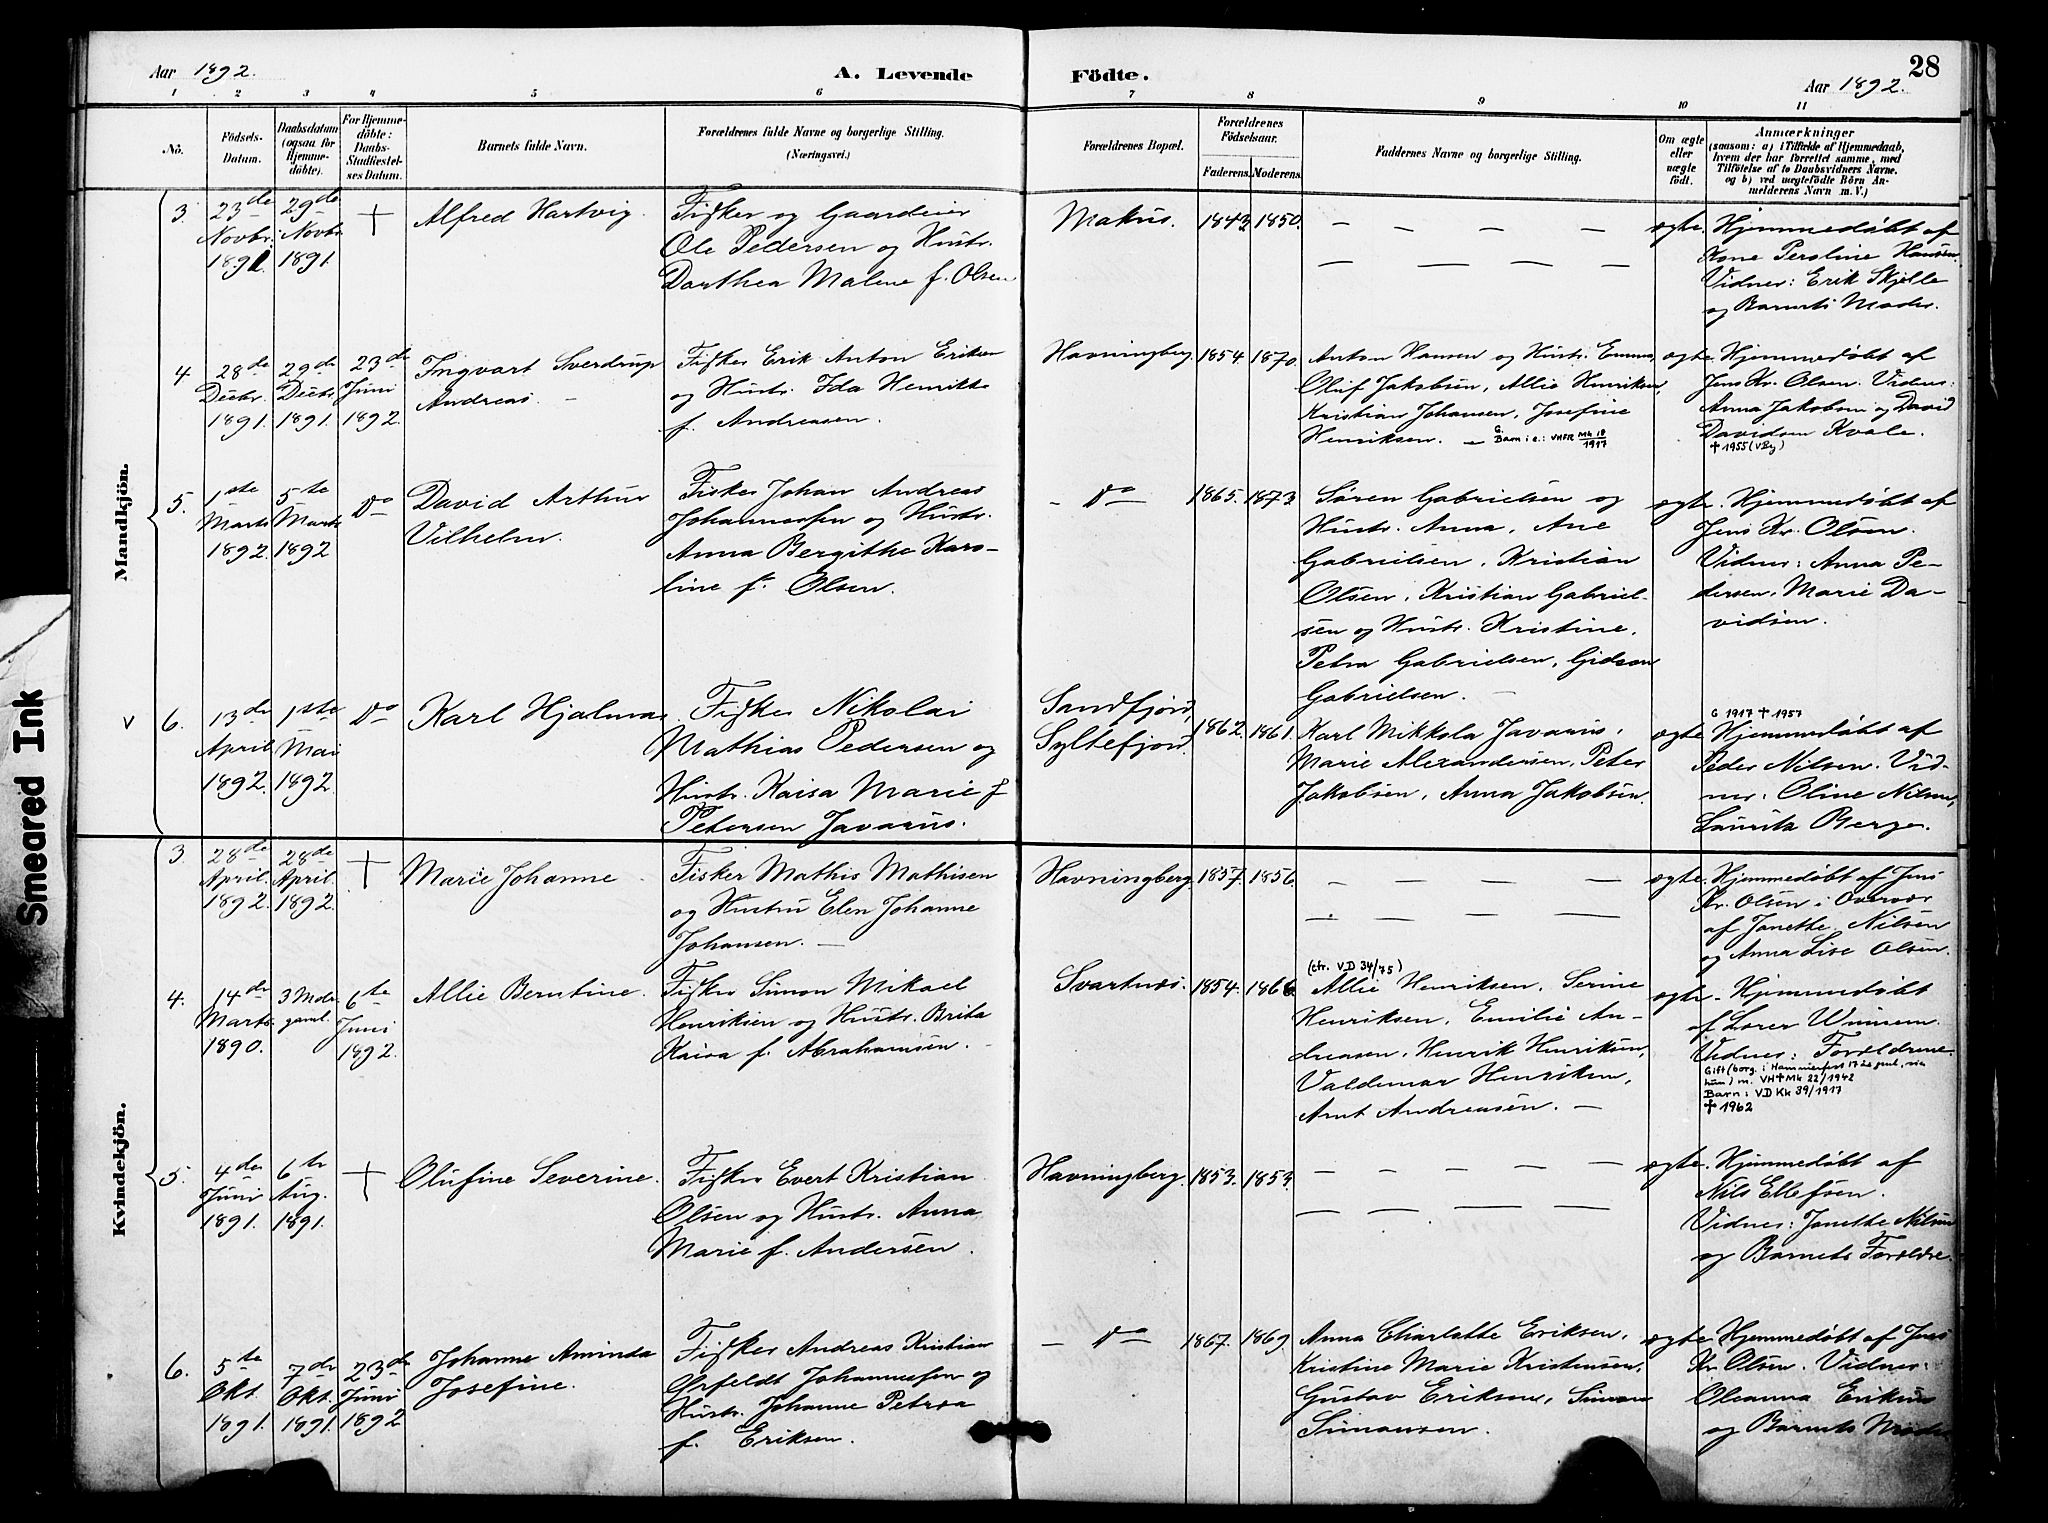 Aar 1892.
A. Levende
Födte.
28
Aar 1892.
1 2 3 4 5 6 7 8 9 10 11
No.
Födsels-
Datum.
Daabsdatum
(ogsaa for
Hjemme-
döbte).
For Hjemme-
döbte:
Daabs-
Stadfæstel-
ses Datum.
Barnets fulde Navn.
Forældrenes fulde Navne og borgerlige Stilling.
(Næringsvei.)
Forældrenes Bopæl.
Forældrenes
Födselsaar.
Faderens. Moderens.
Faddernes Navne og borgerlige Stilling.
Om ægte
eller
uægte
födt.
Anmærkninger
(saasom: a) i Tilfælde af Hjemmedaab,
hvem der har forrettet samme, med
Tilföielse af to Daabsvidners Navne.
og b) ved uægtefödte Börn An-
melderens Navn m. V.)
Mandkjön.
3. 23de Novbr. 1891. 29de Novbr. 1891. †
Alfred Hartvig.
Fisker og Gaardeier
Ole Pedersen og Hustr.
Dorthea Malene f. Olsen
Makus.
1843. 1850.
— — — — —
— — — —
ægte.
Hjemmedøbt af
Kone Peroline Hansen.
Vidner: Erik Skjelle
og Barnets Moder.
4 28de Decbr. 1891. 29de Decbr. 1891. 23de Juni 1892.
Ingvart Sverdrup
Andreas. —
Fisker Erik Anton Eriksen
og Hustr. Ida Henrikke
f. Andreasen.
Havningberg.
1854. 1870.
Anton Hansen og Hustr. Emma,
Oluf Jakobsen, Allie Henriksen,
Kristian Johansen, Josefine
Henriksen. —
G.
Barn i e.: VHFR Mk 18/1917
ægte.
Hjemmedøbt af
Jens Kr. Olsen. Vidner:
Anna Jakobsen og David
Davidsen Kvale.
† 1955 (VBy)
5. 1ste Marts 1892. 5te Marts 1892 Do
David Arthur
Vilhelm.
Fisker Johan Andreas
Johannessen og Hustr.
Anna Bergithe Karo-
line f. Olsen.
— Do —
1865. 1873.
Søren Gabrielsen og
Hustr. Anna, Ane
Gabrielsen, Kristian
Olsen, Kristian Gabriel-
sen og Hustr. Kristine,
Petra Gabrielsen, Gideon
Gabrielsen. —
ægte.
Hjemmedøbt af
Jens Kr. Olsen.
Vidner: Anna Pe-
dersen, Marie Da-
vidsen.
v
6. 13de April 1892. 1ste Mai 1892. Do
Karl Hjalmar.
Fisker Nikolai
Mathias Pedersen og
Hustr. Kaisa Marie f.
Petersen Javarus.
Sandfjord,
Syltefjord.
1862. 1861.
Karl Mikkola Javarus,
Marie Alexandersen, Peter
Jakobsen, Anna Jakobsen.
ægte.
G 1917 † 1957
Hjemmedøbt af
Peder Nilsen. Vid-
ner: Oline Nilsen,
Lauritz Berge.
Kvindekjön.
3. 28de April. 1892. 28de April. 1892. †
Marie Johanne
Fisker Mathis Mathisen
og Hustru Elen Johanne
Johansen. —
Havningberg.
1857. 1856.
— — — —
— — — —
ægte.
Hjemmedøbt af Jens
Kr. Olsen i Overvær
af Janette Nilsen
og Anna Lise Olsen.
4. 14de Marts 1890. 3 Mdr. gaml. 6te Juni 1892.
Allie Berntine.
Fisker Simon Mikael
Henriksen og Hustr. Brita
Kaisa f. Abrahamsen.
Svartnæs.
1854. 1866.
(ctr. VD 34/75)
Allie Henriksen, Serine
Henriksen, Emilie An-
dreasen, Henrik Henriksen,
Valdemar Henriksen,
Arnt Andreasen. —
ægte.
Hjemmedøbt
af Lærer
Vidner: Forældrene.
Gift (borg. i Hammerfest 17
hun) m. VH†Mk 22/1942
Barn: VD Kk 39/1917
† 1962
5. 4de Juni 1891. 6te Aug. 1891. †
Olufine Severine.
Fisker Evert Kristian
Olsen og Hustr. Anna
Marie f. Andersen.
Havningberg.
1853. 1853.
— — — — —
— — — —
ægte.
Hjemmedøbt af
Nils Ellefsen.
Vidner: Janette Nilsen
og Barnets Forældre.
6. 5te Okt. 1891. 7de Okt. 1891. 23de Juni 1892
Johanne Aminda
Josefine.
Fisker Andreas Kristian
Ørfeldt Johannessen og
Hustr. Johanne Petrea
f. Eriksen.
— Do —
1867. 1869
Anna Charlotte Eriksen,
Kristine Marie Kristensen,
Gustav Eriksen, Simon
Simonsen.
ægte.
Hjemmedøbt af Jens
Kr. Olsen. Vidner:
Oleanna Eriksen
og Barnets Moder
Smeared Ink